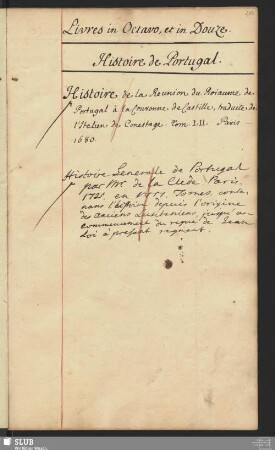 Livres in Octavo, et in Douze.
Histoire de Portugal.
Histoire de la Reunion du Roiaume de
Portugal à la Couronne de Castille, traduite de
l'Italien de Conestage. Tom. I.II. Paris
1680.
Histoire Generalle de Portugal
par Mr. de la Clede Paris
en Tomes, conte-
nans l'histoire depuis l'origine
des anciens Lusitaniens, jusqu'au
commencement du regne de Jean
Roi à present regnant.
SLUB
Wir führen Wissen.